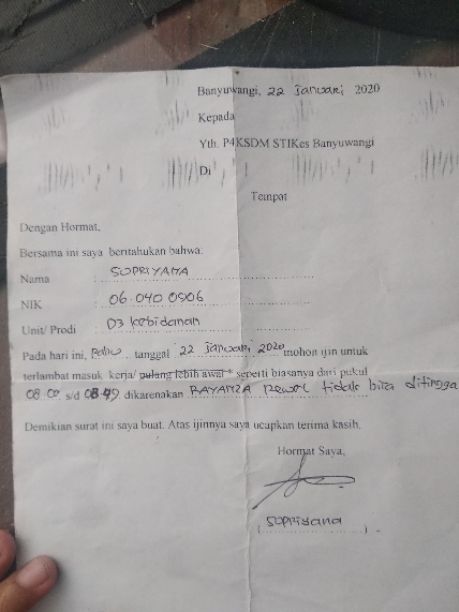 Banyuwangi, 22 Januari 2020
Kepada
Yth. P4KSDM STIKes Banyuwangi
Di
Tempat
Dengan Hormat,
Bersama ini saya beritahukan bahwa:
Nama : SUPRIYANA
NIK : 06.040 0906
Unit/ Prodi : D3 Kebidanan
Pada hari ini, Rabu tanggal 22 Januari 2020 mohon ijin untuk
terlambat masuk kerja/ pulang lebih awal * seperti biasanya dari pukul
08.00 s/d 08.49 dikarenakan RAYANZA rewel tidak bisa ditingga
Demikian surat ini saya buat. Atas ijinnya saya ucapkan terima kasih.
Hormat Saya,
( Supriyana )